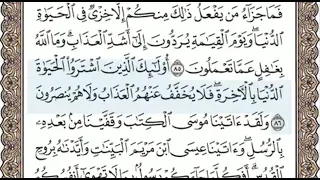 فَمَا جَزَآءُ مَن يَفْعَلُ ذَٰلِكَ مِنكُمْ إِلَّا خِزْىٌ فِى ٱلْحَيَوٰةِ
ٱلدُّنْيَا ۖ وَيَوْمَ ٱلْقِيَٰمَةِ يُرَدُّونَ إِلَىٰٓ أَشَدِّ ٱلْعَذَابِ ۗ وَمَا ٱللَّهُ
بِغَٰفِلٍ عَمَّا تَعْمَلُونَ ٨٥ أُو۟لَٰٓئِكَ ٱلَّذِينَ ٱشْتَرَوُا۟ ٱلْحَيَوٰةَ
ٱلدُّنْيَا بِٱلْـَٔاخِرَةِ ۖ فَلَا يُخَفَّفُ عَنْهُمُ ٱلْعَذَابُ وَلَا هُمْ يُنصَرُونَ ٨٦
وَلَقَدْ ءَاتَيْنَا مُوسَى ٱلْكِتَٰبَ وَقَفَّيْنَا مِنۢ بَعْدِهِۦ
بِٱلرُّسُلِ ۖ وَءَاتَيْنَا عِيسَى ٱبْنَ مَرْيَمَ ٱلْبَيِّنَٰتِ وَأَيَّدْنَٰهُ بِرُوحِ